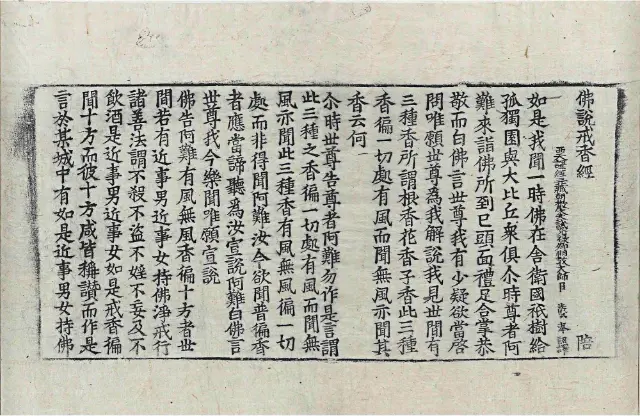 佛說戒香經　陪
西天譯經三藏朝散大夫　詔譯
如是我聞一時佛在舍衛國祇樹給
孤獨園與大比丘衆俱尒時尊者阿
難來詣佛所到已頭面禮足合掌恭
敬而白佛言世尊我有少疑欲當啓
問唯願世尊爲我解說我見世間有
三種香所謂根香花香子香此三種
香徧一切處有風而聞無風亦聞其
香云何
尒時世尊告尊者阿難勿作是言謂
此三種之香徧一切處有風而聞無
風亦聞此三種香有風無風徧一切
處而非得聞阿難汝今欲聞普徧香
者應當諦聽爲汝宣說阿難白佛言
世尊我今樂聞唯願宣說
佛告阿難有風無風香徧十方者世
間若有近事男近事女持佛淨戒行
諸善法謂不殺不盜不婬不妄及不
飲酒是近事男近事女如是戒香徧
聞十方而彼十方咸皆稱讚而作是
言於某城中有如是近事男女持佛